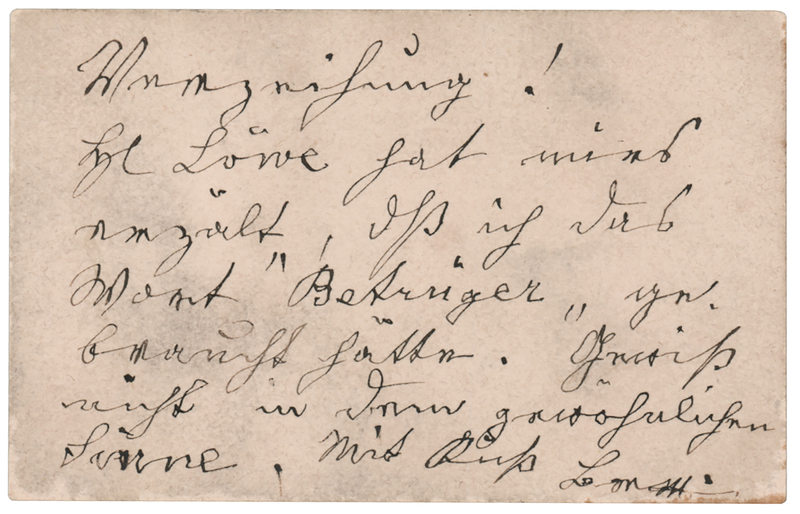 Verzeihung!
Hl Löwe hat mir's
erzält, dß ich das
Wort "Betrüger„ ge-
braucht hätte. Gewiß
nicht in dem gewöhnlichen
Sinne. Mit Kuß